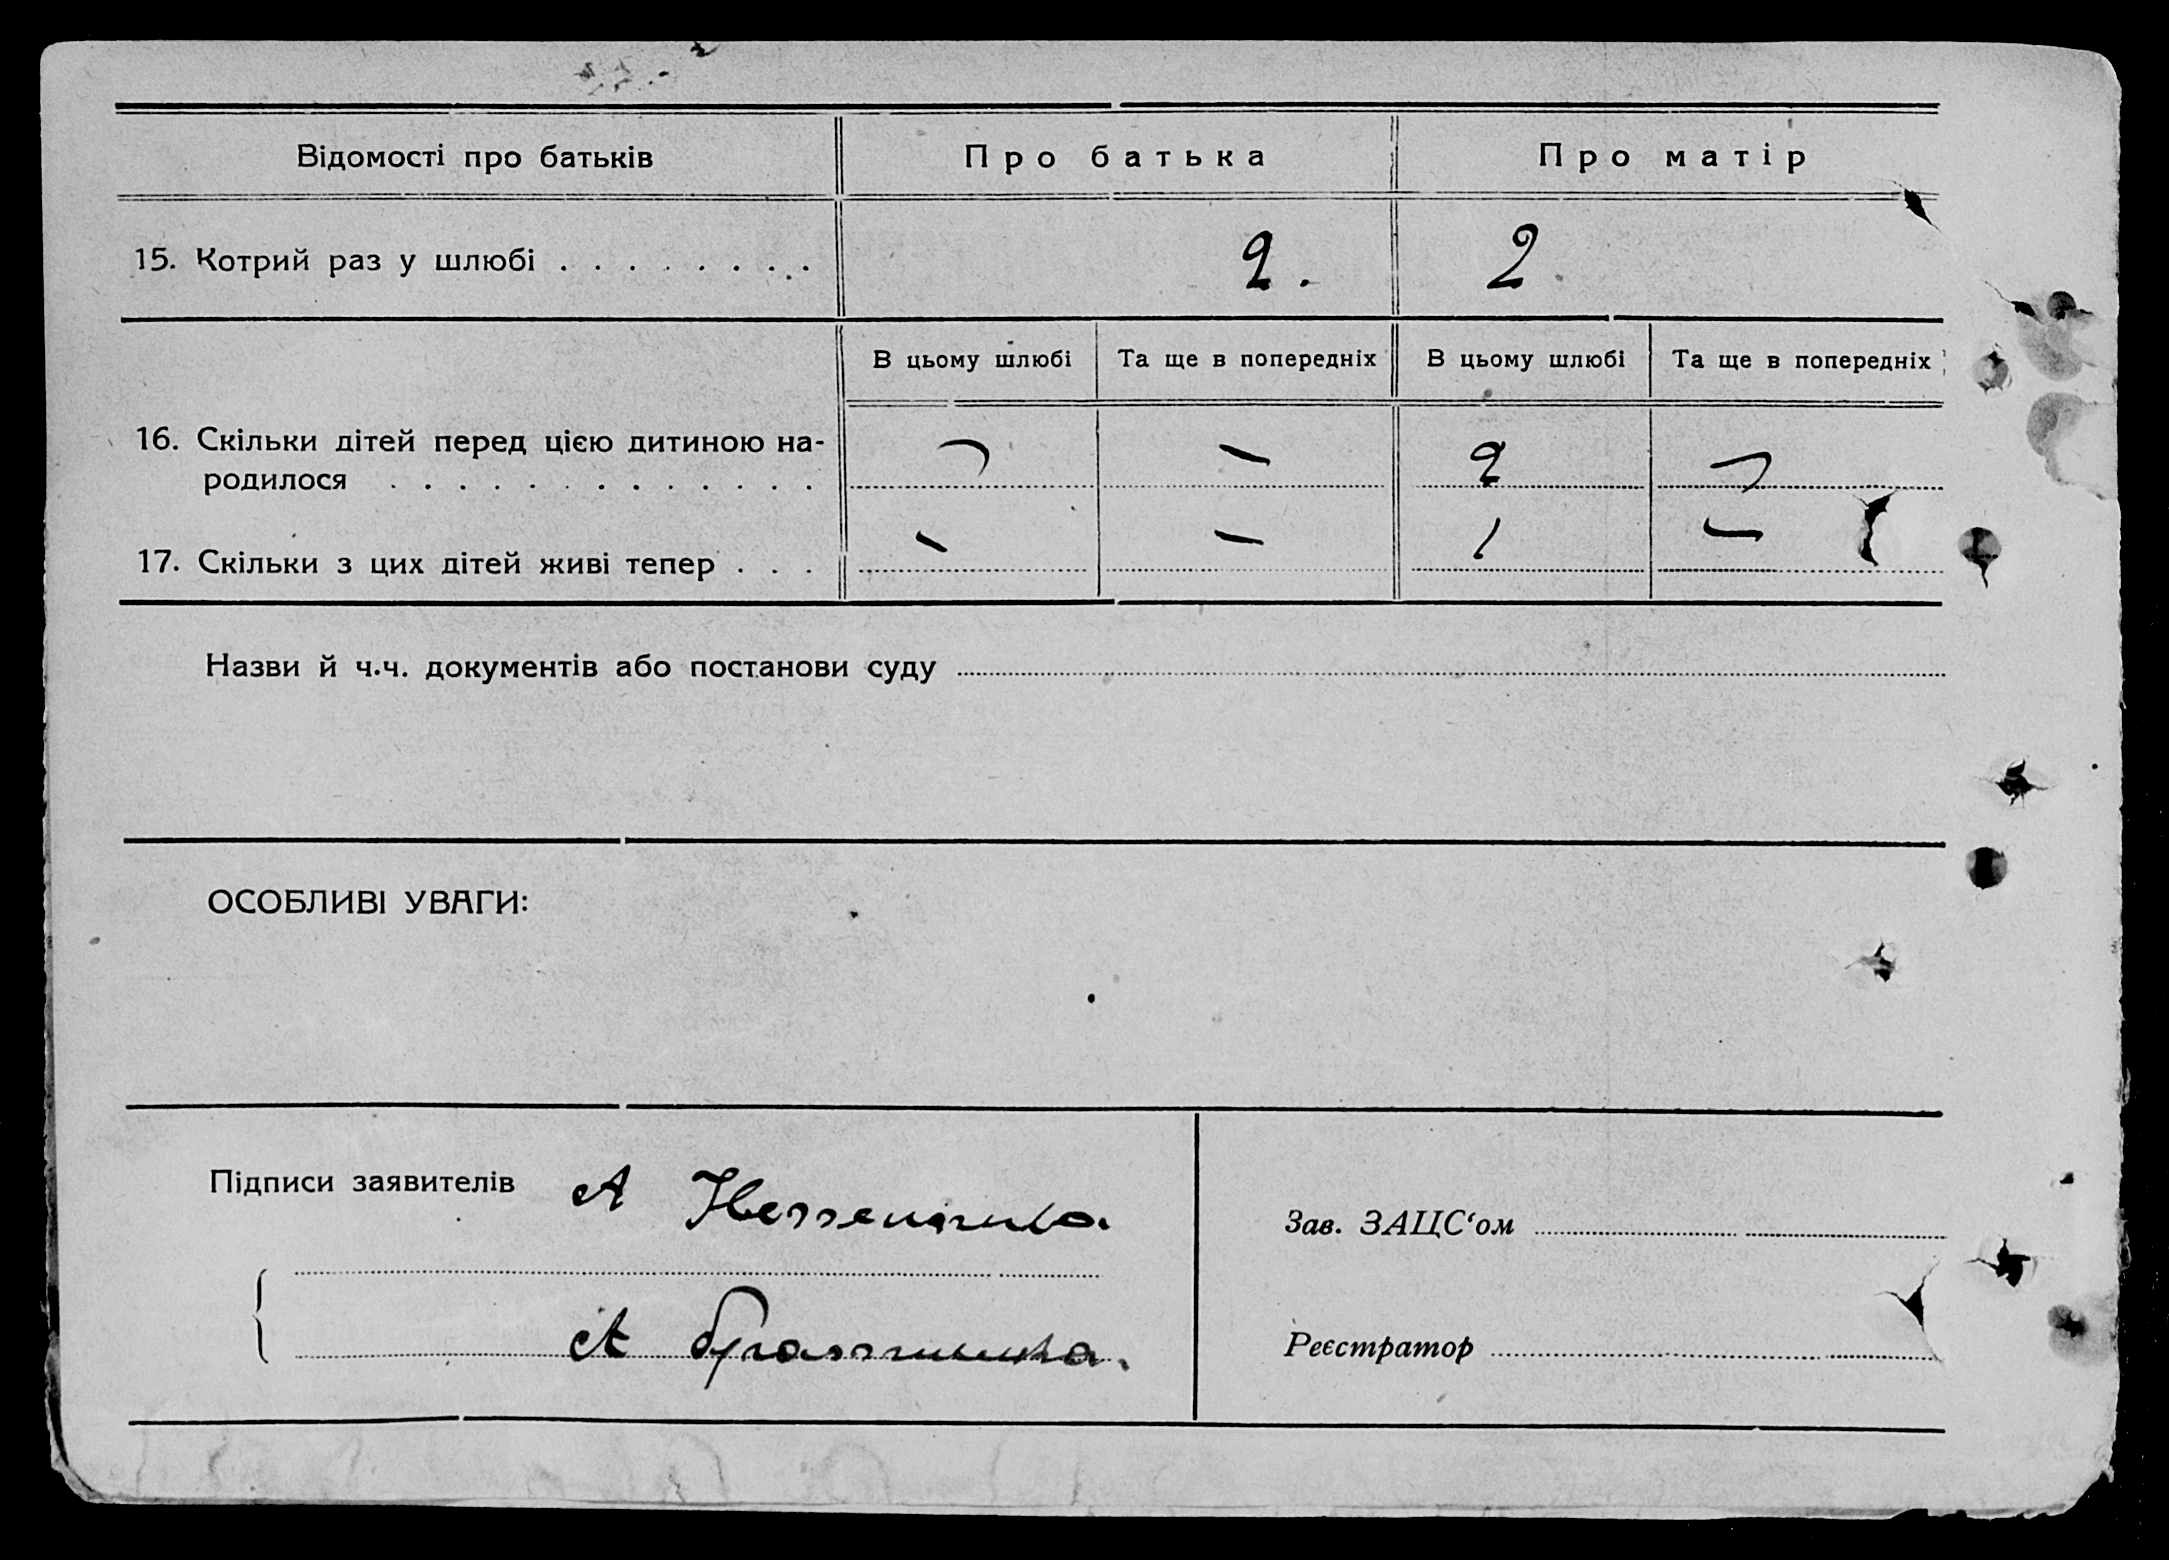 Відомості про батьків
Про батька
Про матір
15. Котрий раз у шлюбі . . . . . . . .
2.
2
В цьому шлюбі
Та ще в попередніх
В цьому шлюбі
Та ще в попередніх
16. Скільки дітей перед цією дитиною на-
родилося . . . . . . . . . . . . .
—
—
2
—
17. Скільки з цих дітей живі тепер . . .
—
—
1
—
Назви й ч.ч. документів або постанови суду
ОСОБЛИВІ УВАГИ:
Підписи заявителів А
Зав. ЗАЦС‘ом
А
Реєстратор